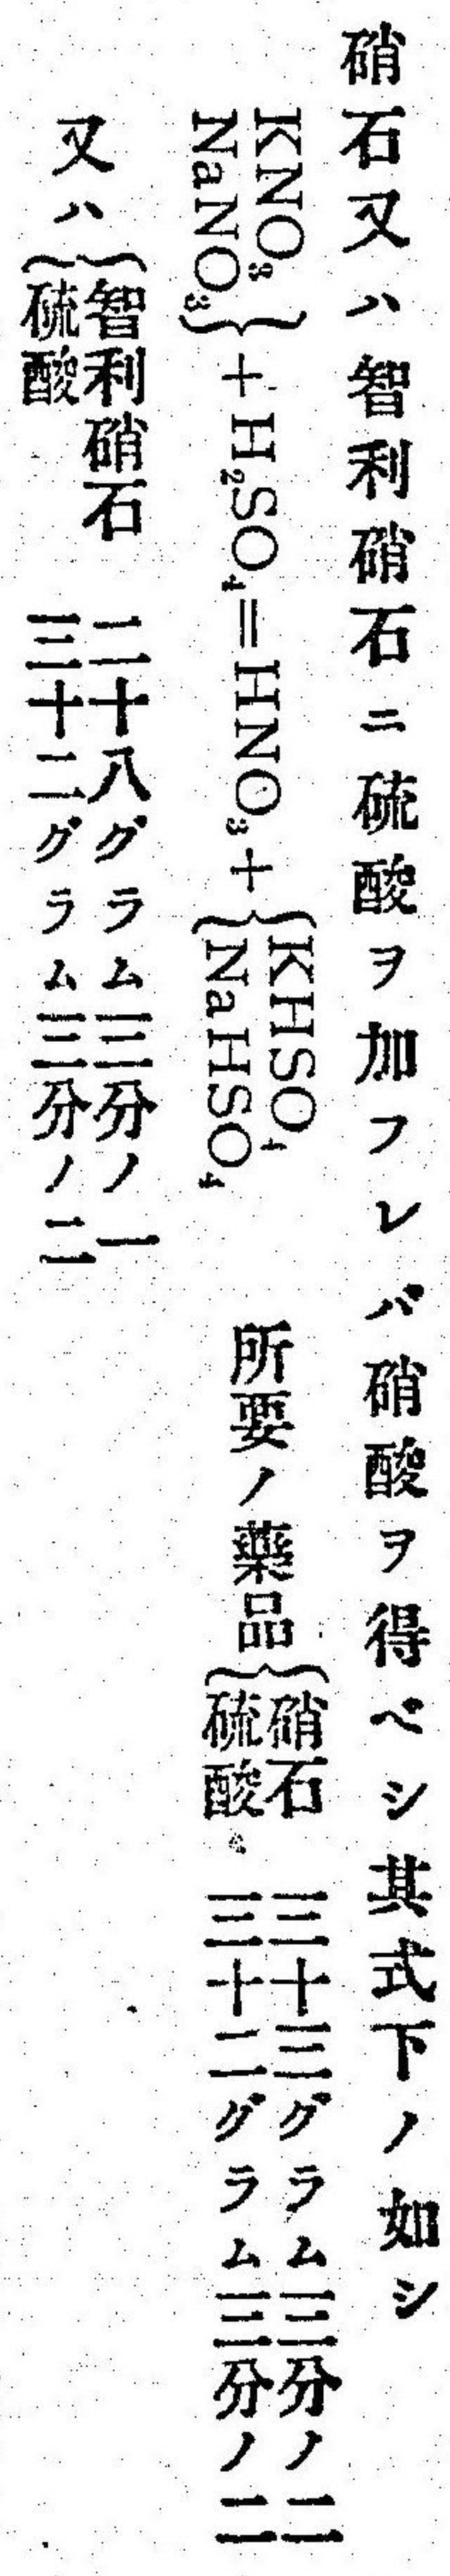 硝石又ハ智利硝石ニ硫酸ヲ加フレバ硝酸ヲ得ベシ其式下ノ如シ
KNO₃
NaNO₃
}+H₂SO₄=HNO₃+{
KHSO₄
NaHSO₄
所要ノ藥品{
硝石 三十三グラム三分ノ二
硫酸 三十二グラム三分ノ二
又ハ{
智利硝石 二十八グラム三分ノ一
硫酸 三十二グラム三分ノ二